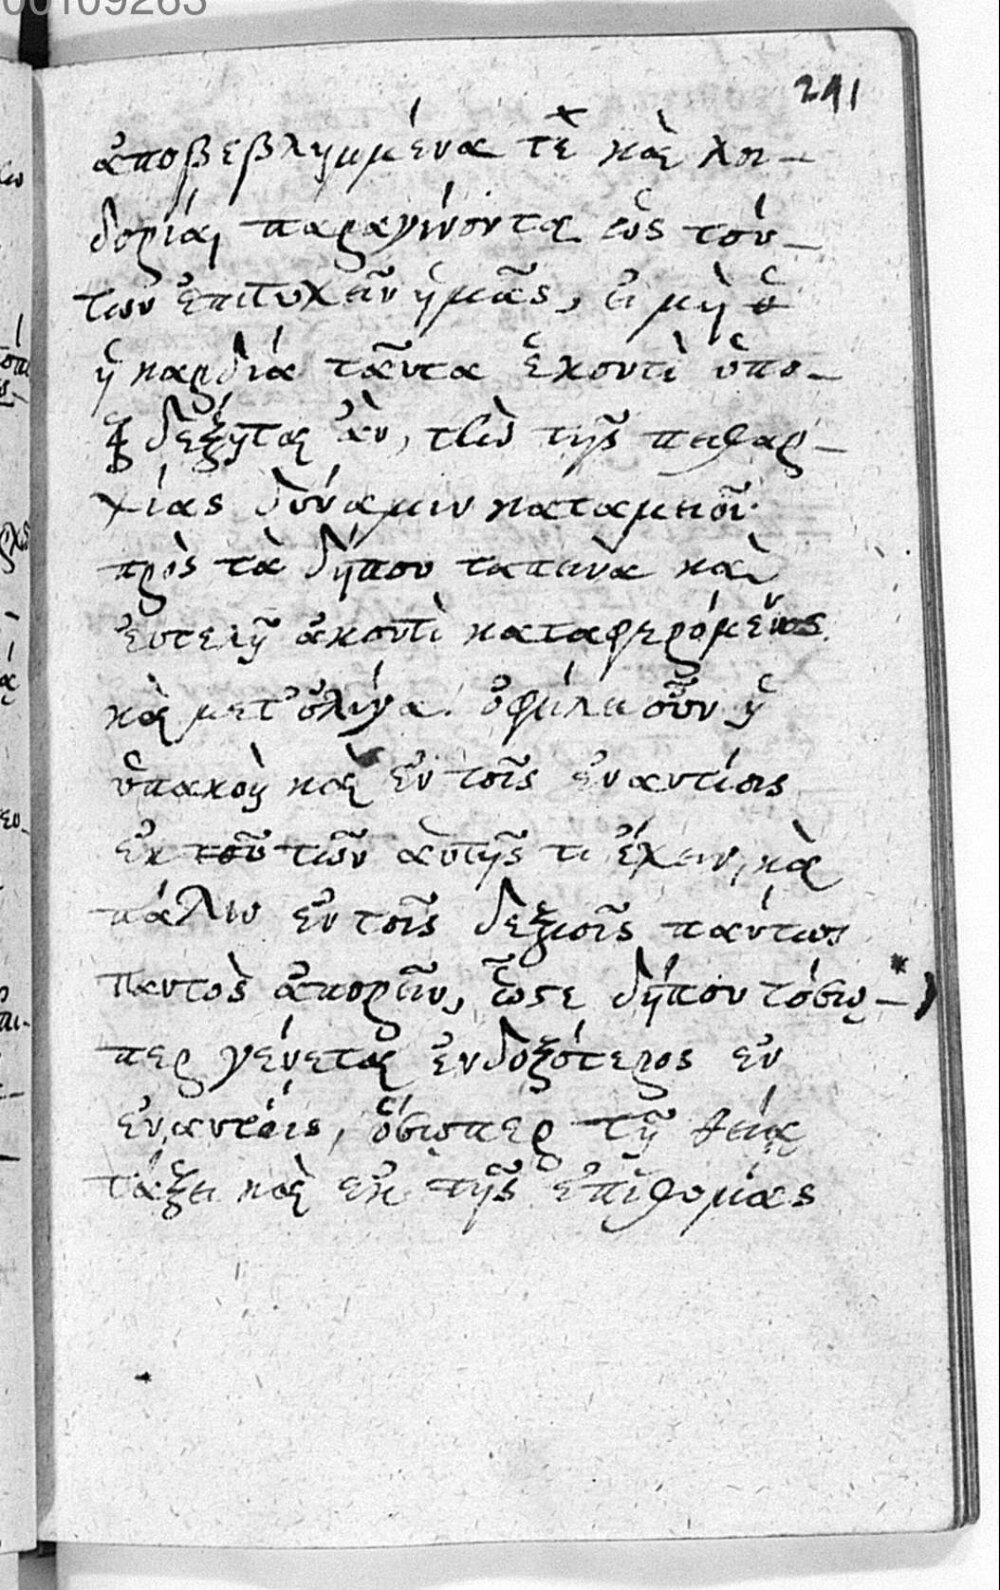 00109263
291
ἀποβεβλημμένα τὲ καὶ λοι-
δορίᾳ παραγίνονται ἕως τού-
των ἐπιτυχεῖν ἡμᾶς, εἰ μὴ
ἡ καρδία ταῦτα ἑκοντὶ ὑπο-
δεξῆται ἂν, τὴν τῆς πειθαρ-
χίας δύναμιν καταμειοῖ·
πρὸς τὰ δήπου ταπεινὰ καὶ
εὐτελῆ ἀκοντὶ καταφερόμενος
καὶ μετ' ὀλίγα. ὀφείλει οὖν ἡ
ὑπακοὴ καὶ ἐν τοῖς ἐναντίοις
ἐκ τοῦ τῶν αὐτῆς τι ἔχειν, καὶ
πάλιν ἐν τοῖς δεξιοῖς πάντως
παντὸς ἀπορεῖν, ὥστε δήπου τόσῳ-
περ γένεται ἐνδοξότερος ἐν
ἐναντίοις, ὅσῳπερ τῇ θείᾳ
τάξει καὶ ἐκ τῆς ἐπιθυμίας